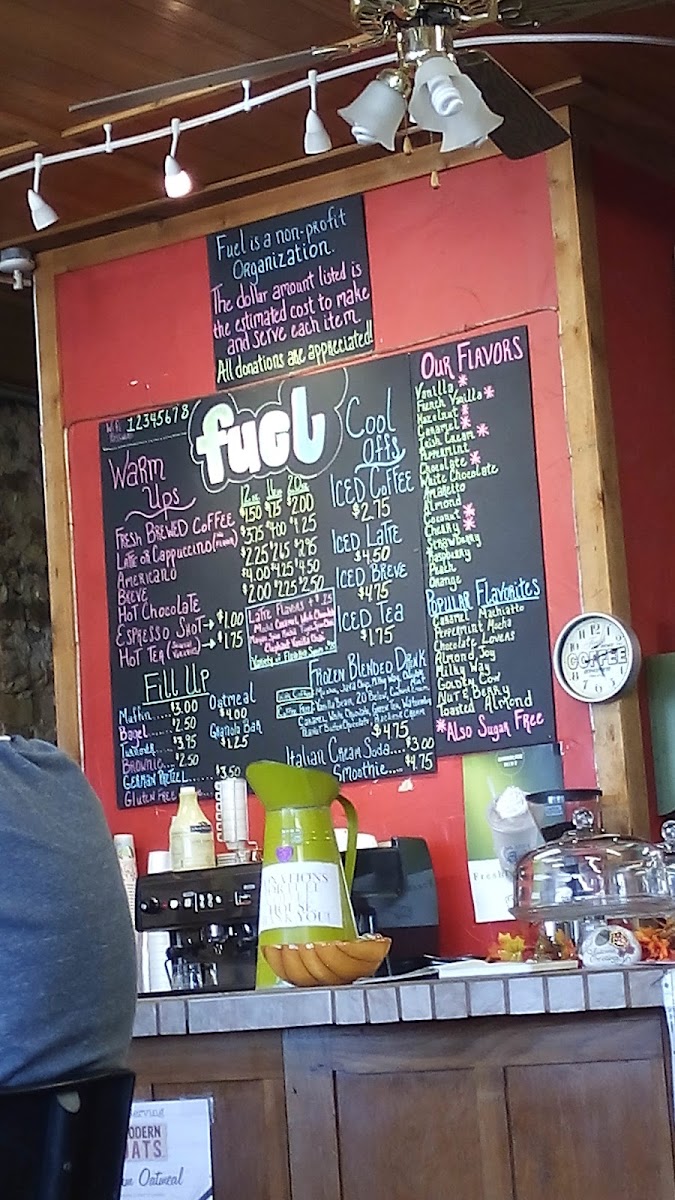 Fuel is a non-profit
Organization.
The dollar amount listed is
the estimated cost to make
and serve each item.
All donations are appreciated!
Wifi 12345678
fuel
Warm
Ups
12oz 16oz 20oz
Fresh Brewed Coffee $1.50 $1.75 $2.00
Latte or Cappuccino $3.75 $4.00 $4.25
Americano $2.25 $2.65 $2.95
Breve $4.00 $4.25 $4.50
Hot Chocolate $2.00 $2.25 $2.50
Espresso Shot → $1.00
Hot Tea → $1.75
Cool
Offs
Iced Coffee
$2.75
Iced Latte
$4.50
Iced Breve
$4.75
Iced Tea
$1.75
Fill Up
Muffin....$3.00
Bagel.....$2.50
Turnover...$3.95
Brownie...$2.50
German Pretzel......$3.50
Gluten Free
Oatmeal
$4.00
Granola Bar
$1.25
Frozen Blended Drink
$4.75
Italian Cream Soda....$3.00
Smoothie....$4.75
Our Flavors
Vanilla *
French Vanilla *
Hazelnut *
Caramel *
Irish Cream *
Peppermint
Chocolate *
White Chocolate
Amaretto
Almond
Coconut *
Cherry *
Strawberry
Raspberry
Peach
Orange
Popular Flavorites
Caramel Machiatto
Peppermint Mocha
Chocolate Lovers
Almond Joy
Milky Way
Goosty Cow
Nut & Berry
Toasted Almond
*Also Sugar Free
12
COFFEE
NATIONS
OR FUEL
HOUSE
NK YOU!
Fresh
erving
ODERN
OATS
Oatmeal